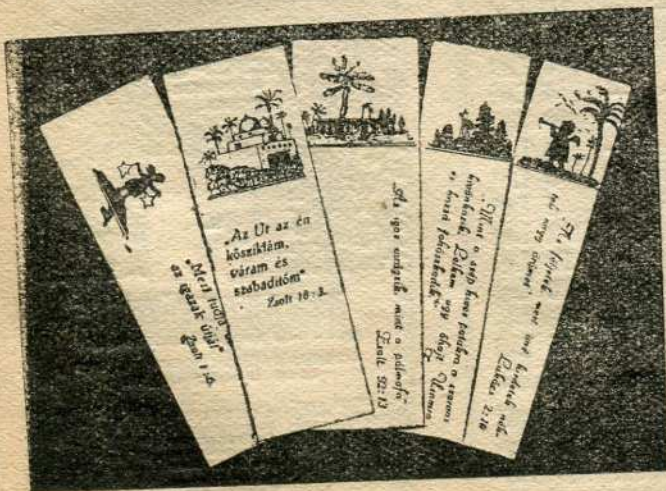 „Mert tudja
az igazak útját"
Zsolt 1:6.
„Az Úr az én
kősziklám,
váram és
szabadítóm"
Zsolt 18:3.
Az igaz virágzik mint a pálmafa"
Zsolt 92:13
„Mint a szép híves patakra a szarvas
kívánkozik Lelkem úgy óhajt Uramra
és hozzá fohászkodik"
„Ne féljetek mert imé hirdetek
nagy örömet"
Lukács 2:10